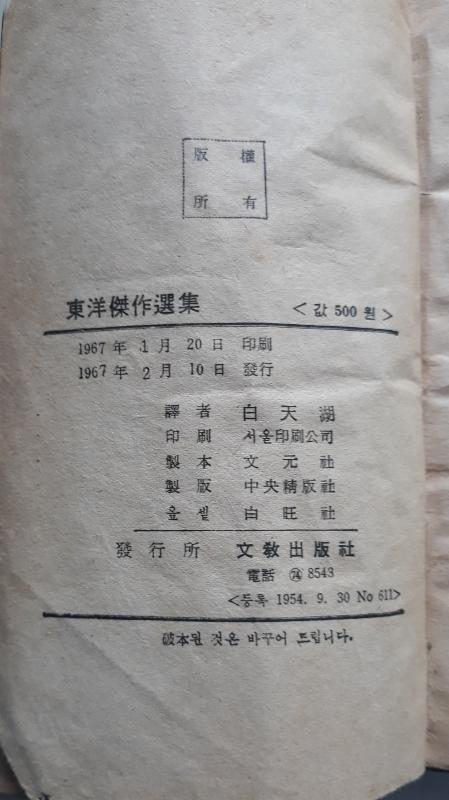 版權
所有
東洋傑作選集 <값 500 원>
1967 年 1 月 20 日 印刷
1967 年 2 月 10 日 發行
譯者 白天湖
印刷 서울印刷公司
製本 文元社
製版 中央精版社
옵셑 白旺社
發行所 文敎出版社
電話 ㉔ 8543
<등록 1954. 9. 30 No 611>
破本된 것은 바꾸어 드립니다.